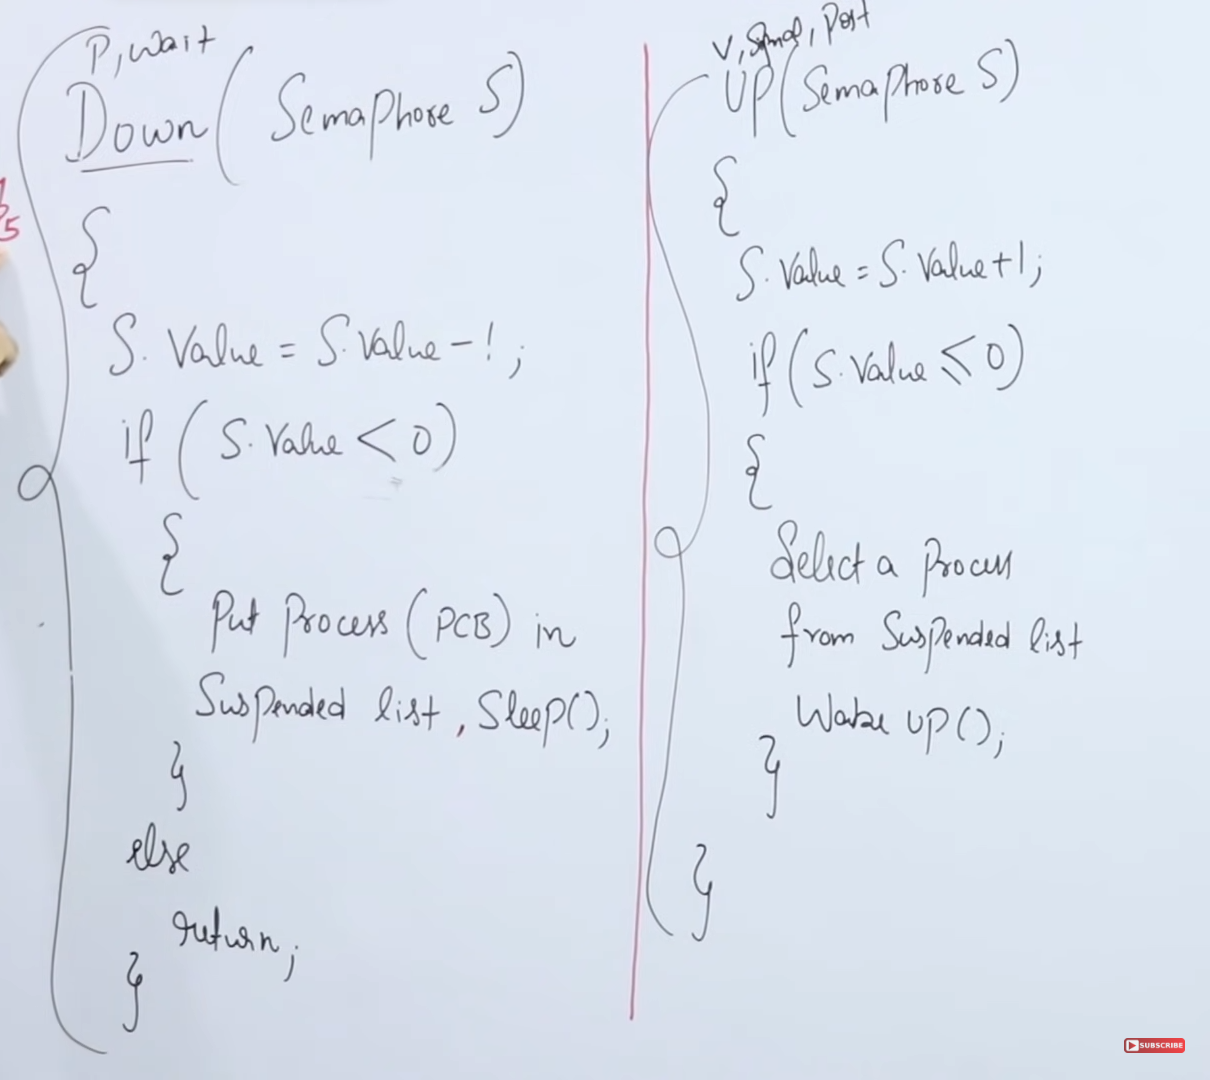 P, wait
Down (Semaphore S)
{
S. Value = S. Value - 1;
if (S. Value < 0)
{
Put Process (PCB) in
Suspended list, Sleep();
}
else
return;
}
V, Signal, Post
UP (Semaphore S)
{
S. Value = S. Value + 1;
if (S. Value ≤ 0)
{
Select a Process
from Suspended list
Wake UP();
}
}
5
SUBSCRIBE